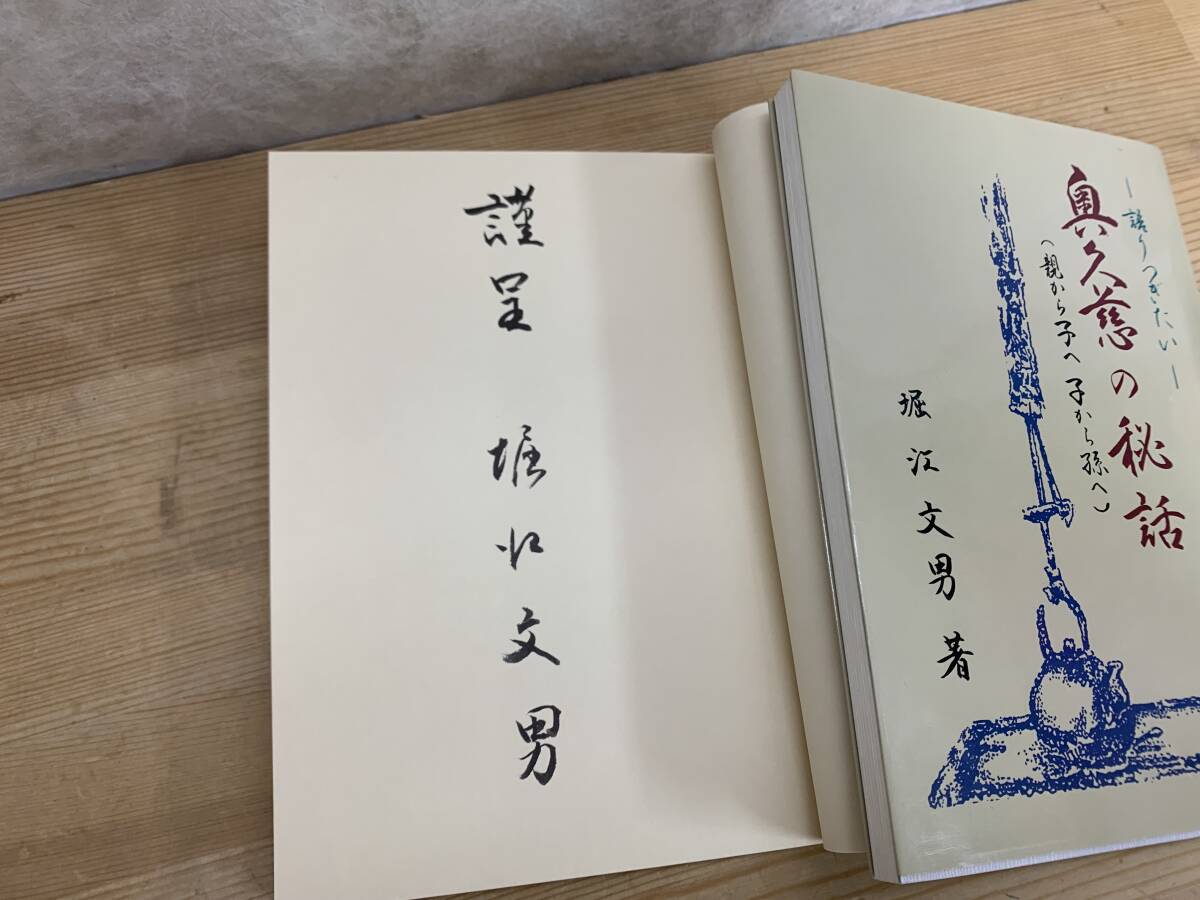 謹呈 堀江文男
―語りつぎたい―
奥久慈の秘話
(親から子へ 子から孫へ)
堀江文男著